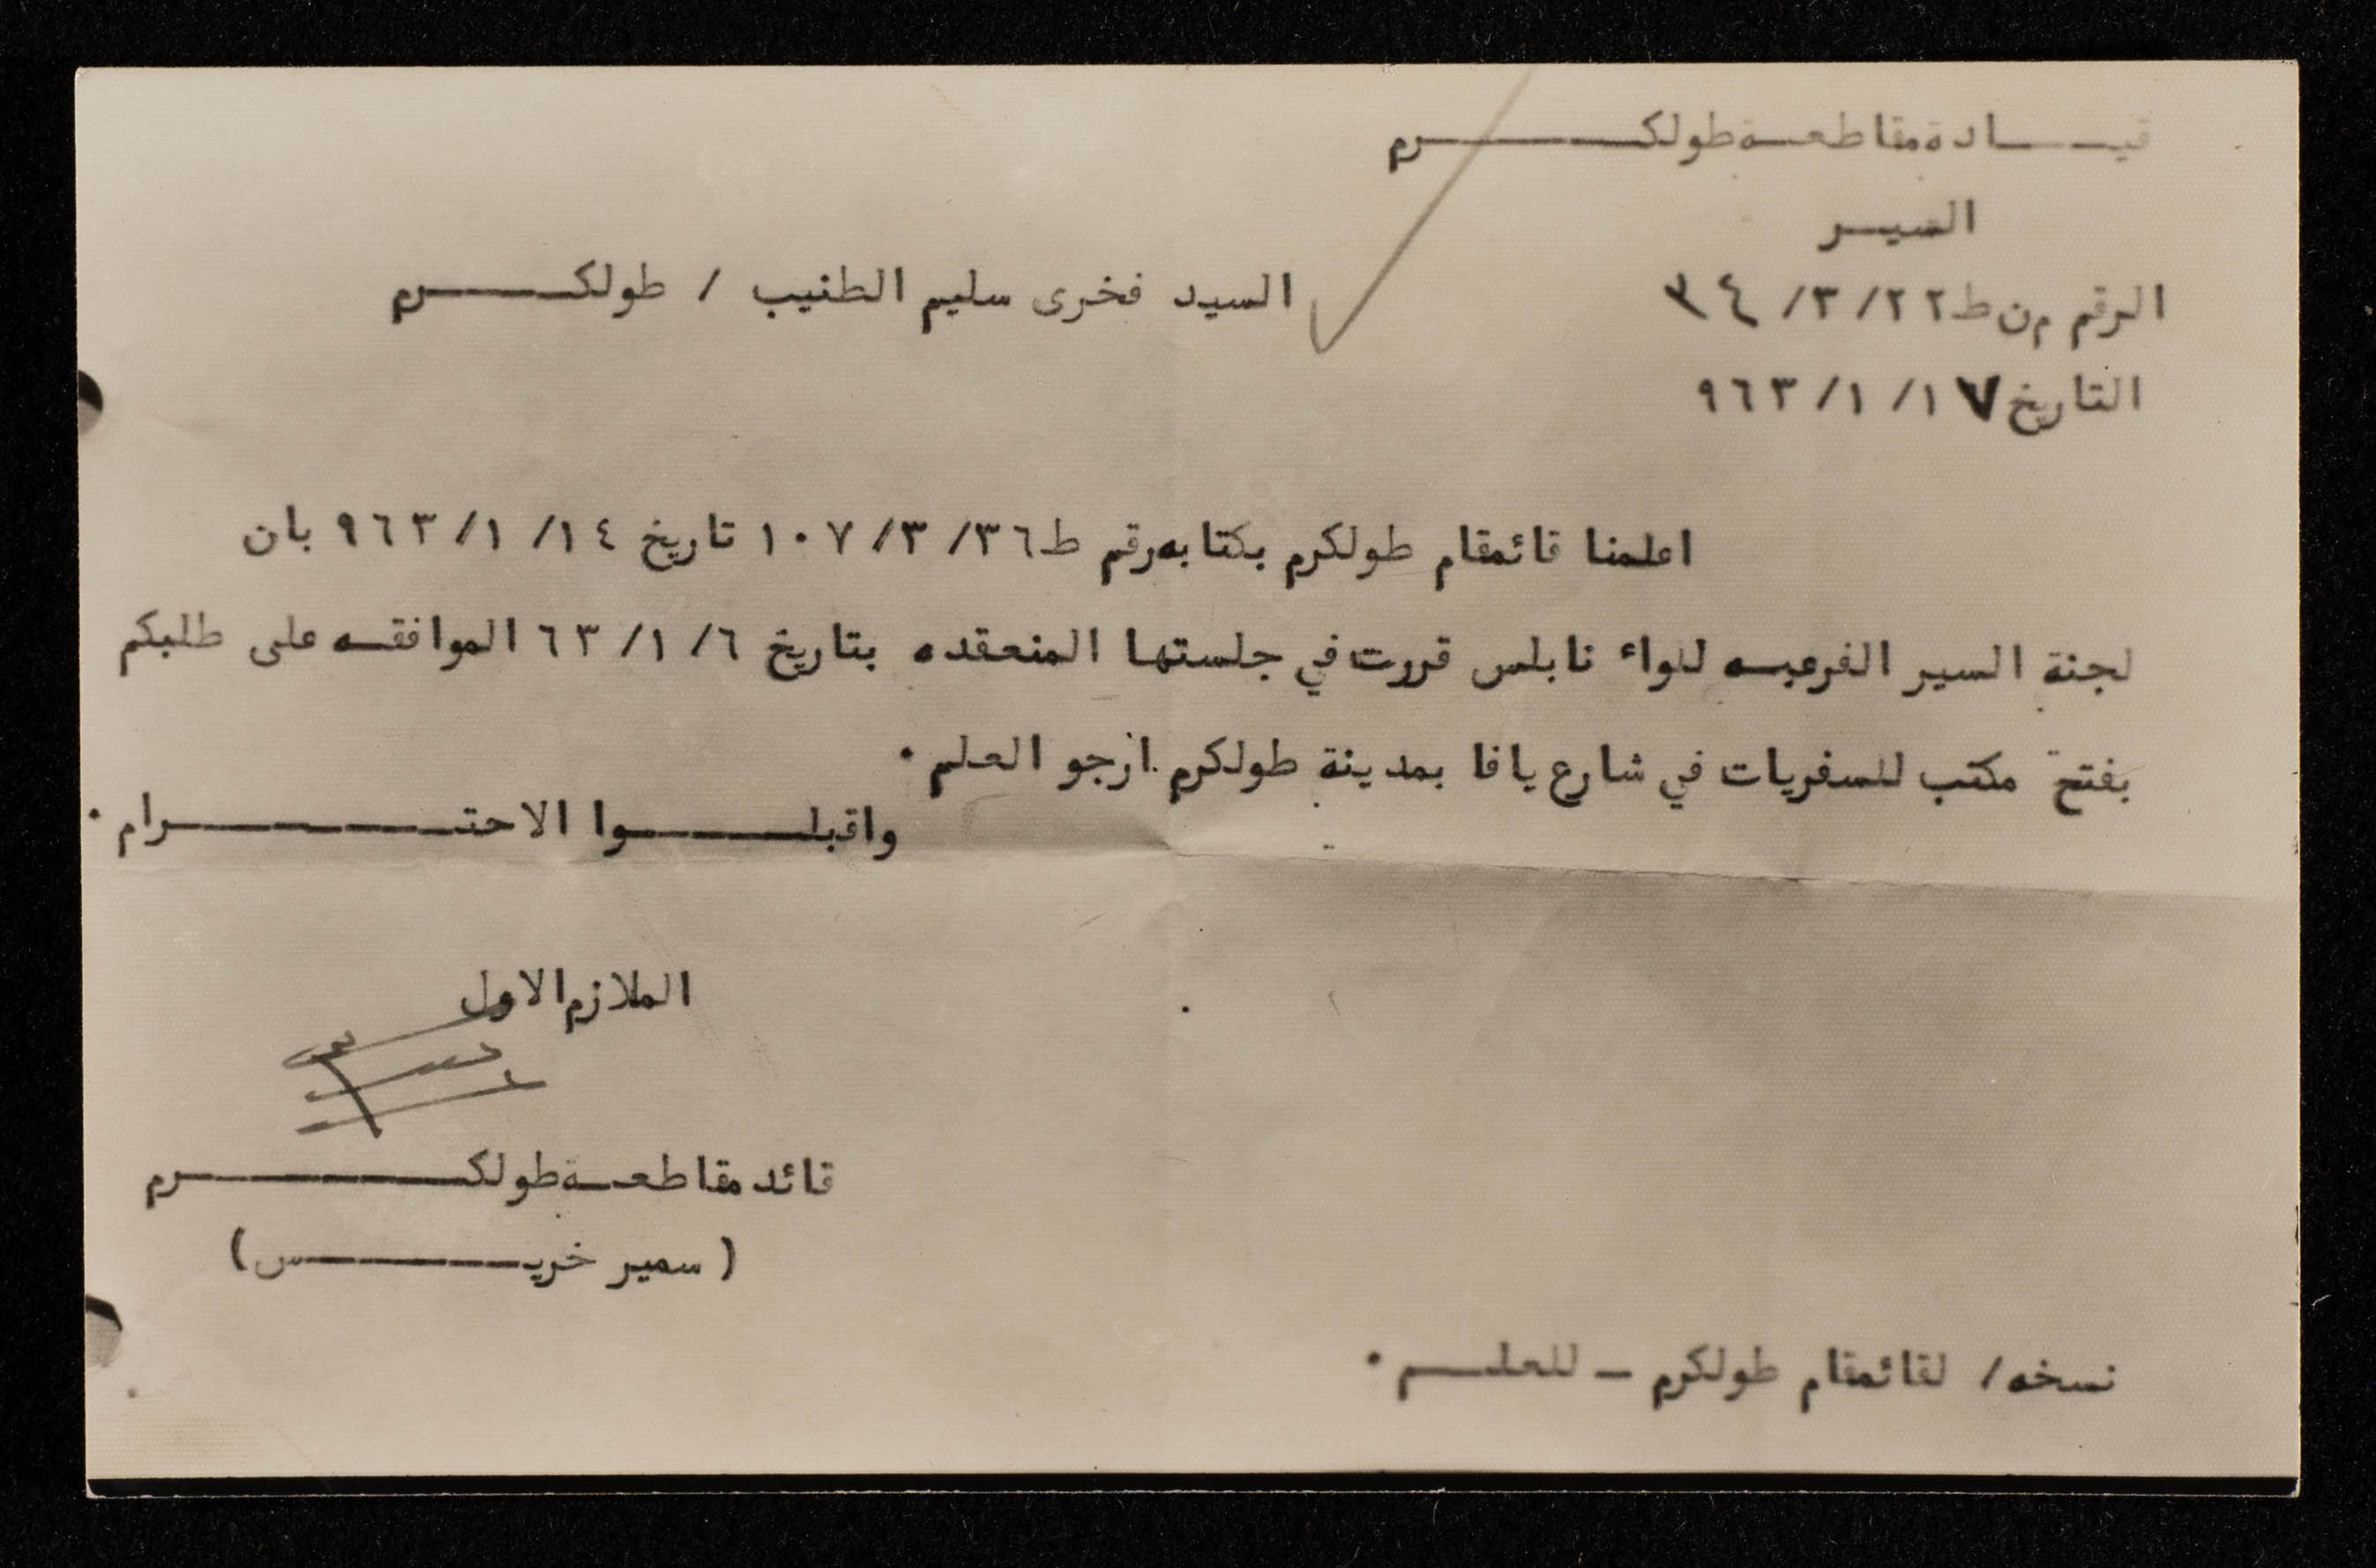 قيـــادة مقاطعـة طولكـــــرم
السيـر
الرقم م ن ط٢٢ /٣/ ٣٤
التاريخ ١٧ /١/ ٩٦٣
السيد فخرى سليم الطنيب / طولكــــرم
اعلمنا قائمقام طولكرم بكتابه رقم ط٣٦ /٣/ ١٠٧ تاريخ ١٤ /١/ ٩٦٣ بان
لجنة السير الفرعيـه للواء نابلس قررت في جلستها المنعقده بتاريخ ٦ /١/ ٦٣ الموافقـه على طلبكم
بفتح مكتب للسفريات في شارع يافا بمدينة طولكرم . ارجو العلم .
واقبلـــــوا الاحتــــــرام .
الملازم الاول
قائد مقاطعـة طولكــــــرم
( سمير خريـــــس )
نسخه / لقائمقام طولكرم - للعلـــم .